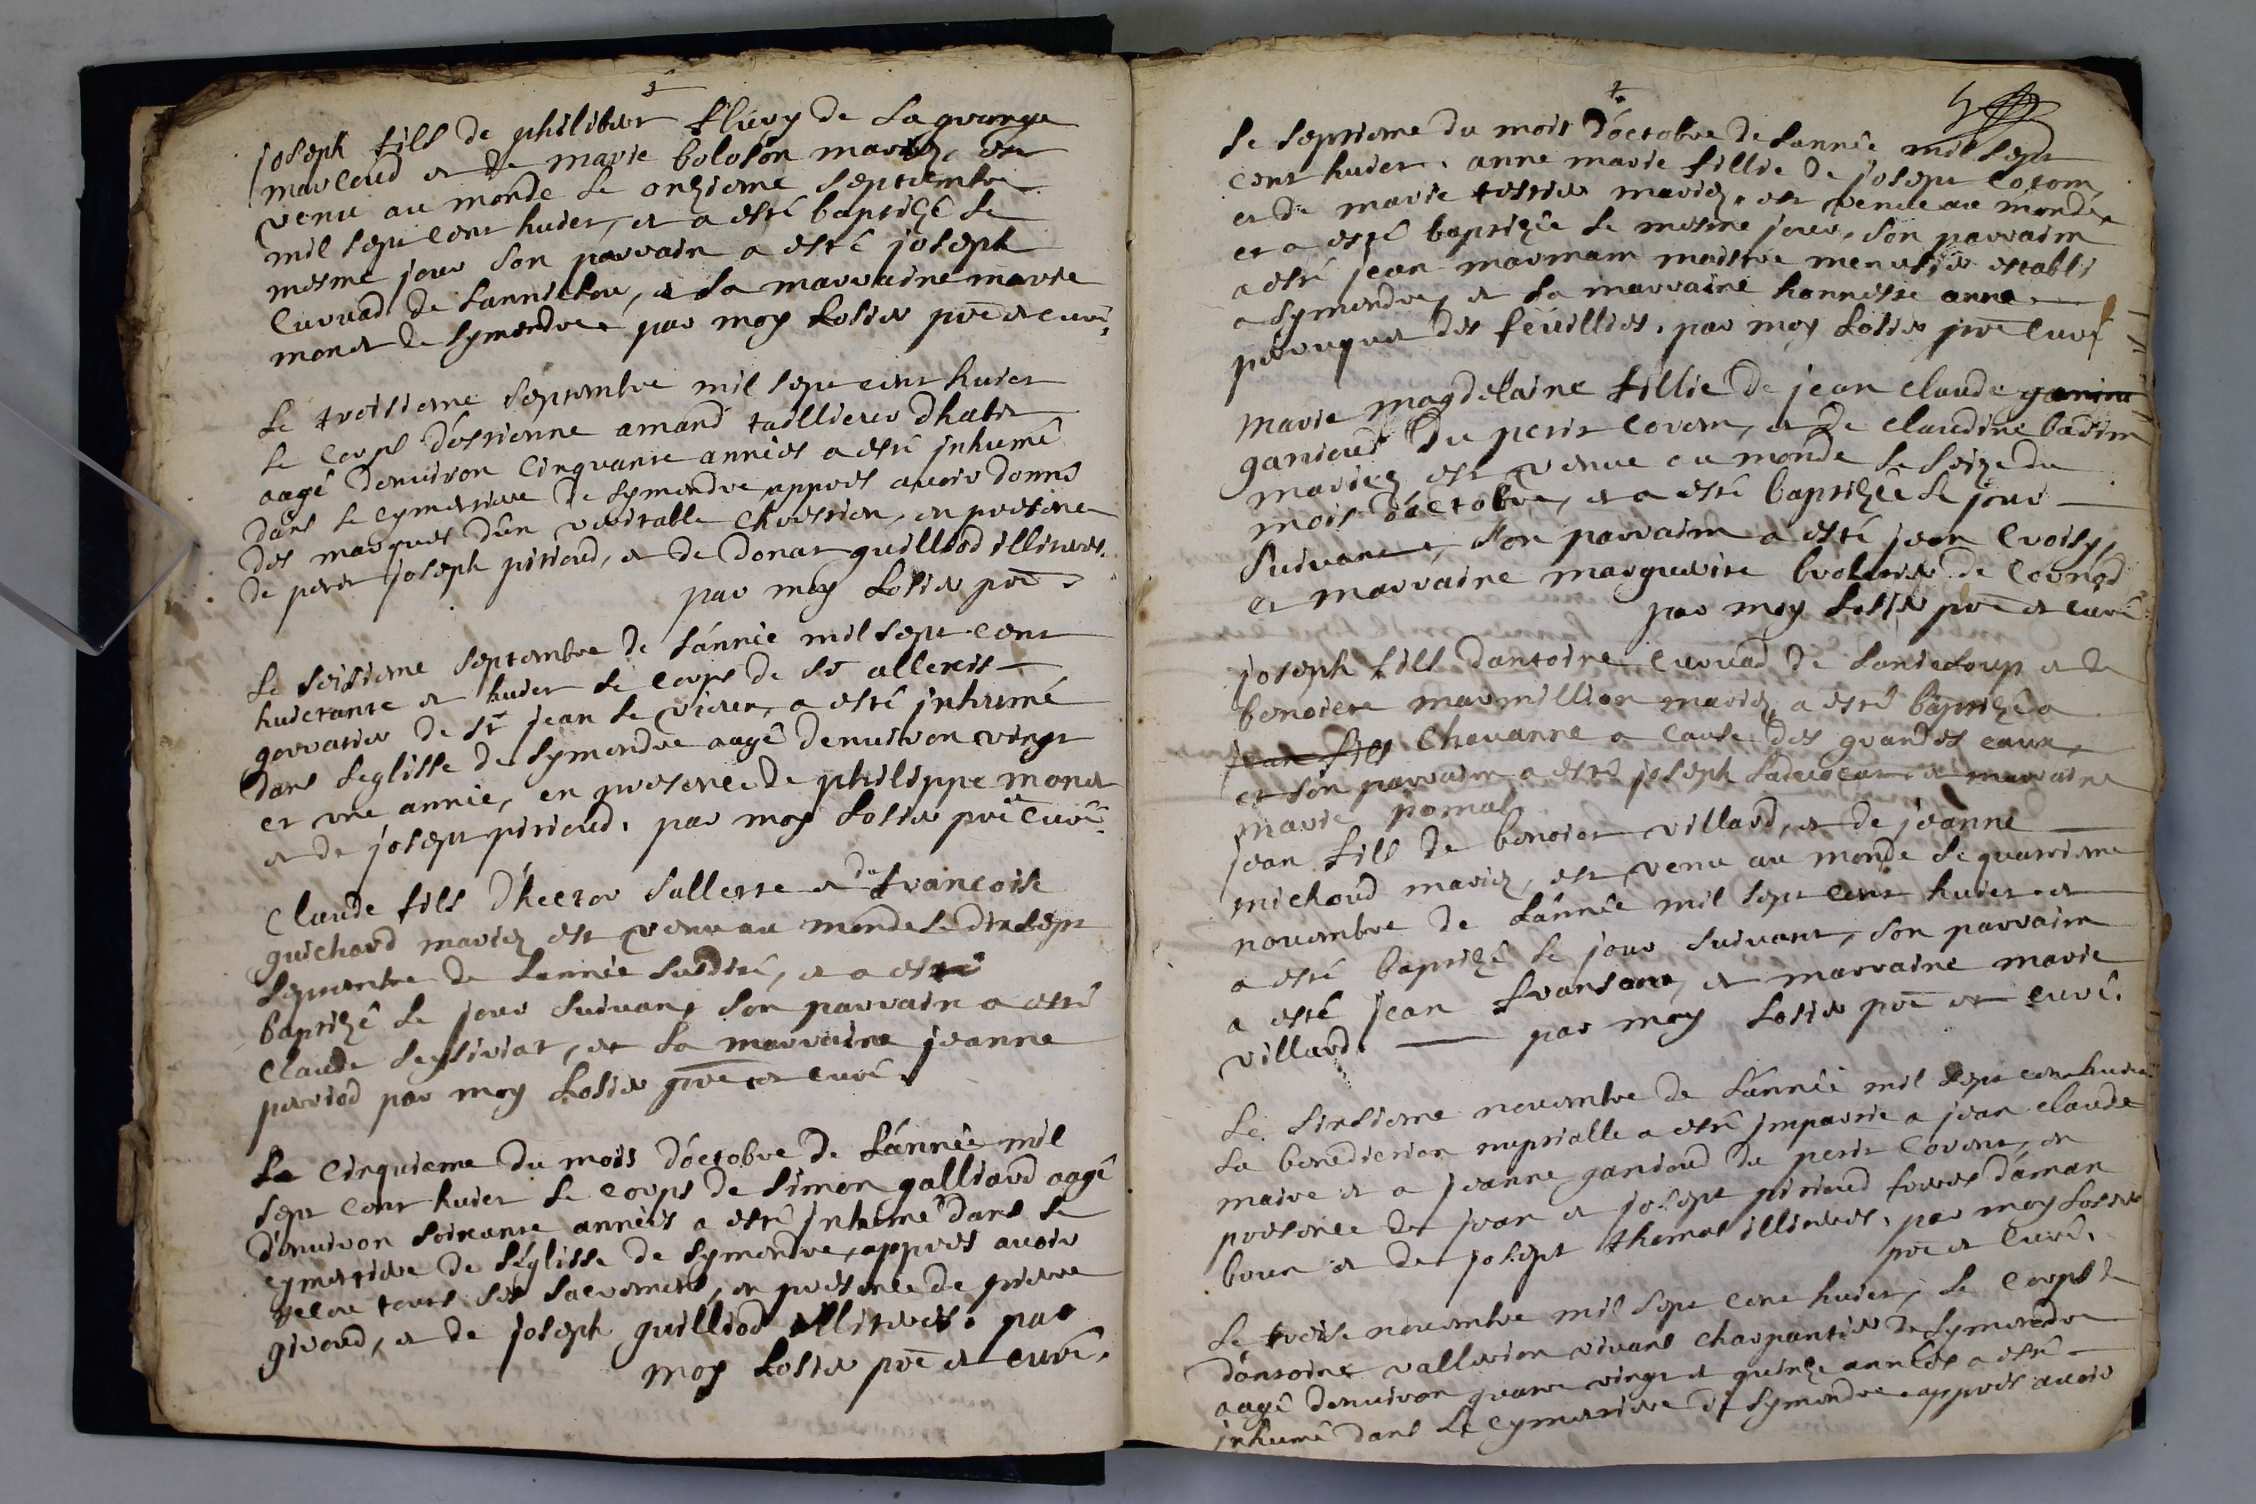 joseph fills de philibert flury de la grange
marcoud et de marie boloson mariez, est
venu au monde le onzieme septembre
mil sept cent huict, et a esté baptizé le
mesme jour son parrain a esté joseph
Curvad de Lanniclou, et la marraine marie
monet de symendre par moy Losier pre et curé.
Le troisieme septembre mil sept cent huict
le corps d'estienne amand taillieur dhabit
aagé denviron cinquante années a esté inhumé
dans le cymetiere de symendre appres avoir donné
des marques d'un veritable chrestien, en presence
de petit joseph pirioud, et de donat guilliod illiteres.
par moy Losier pre
Le seisieme septembre de l'année mil sept cent
huictante et huict le corps de sr allexis
gorratier de st jean le vieux, a esté inhumé
dans leglisse de symendre aagé denviron vingt
et une année, en presence de philippe monet
et de josept pirioud, par moy Losier pre curé.
Claude fils d'hector sallette et de francoise
guichard mariez est venu au monde le dixsept
septembre de lannée susdité, et a esté
baptizé le jour suivant son parrain a esté
Claude legliriat, et la marraine jeanne
perriod par moy Losier pre et curé.
Le cinquieme du mois d'octobre de L'année mil
sept cent huict le corps de simon galliard aagé
d'environ soixante années a esté inhumé dans le
cymetiere de l'églisse de symendre, appres avoir
receu touts ses sacrements, en presence de pierre
giroud, et de joseph guilliod illiteres. par
moy Losier pre et curé.
Le septieme du mois d'octobre de lannée mil sept
cent huict. anne marie fillie de josept cotom,
et de marie testier mariez, est venue au monde
et a esté baptizée le mesme jour, son parraim
a esté jean marmam maistre menusier establi
a symendre, et la marraine honneste anne
perruquet des feüillies, par moy Losier pre curé
Marie magdelaine fillie de jean claude ganiou
ganioud du petit covem, et de claudine badim
mariez est venue au monde le seize du
mois d'octobre, et a esté baptizée le jour
suivant, son parraim a esté jean croisy,
et marraine marguerite broletier de cornod
par moy Losier pre et curé
joseph fills dantoine curvad de laniéloup et de
benoiete marmillion mariez, a esté baptizé a
jean fills chavanne a cause des grandes eaux,
et son parraim a esté joseph ladevocat et marraine
marie pomat
jean fills de benoict villard, et de jeanne
michoud mariez, est venu au monde le quatrieme
novembre de L'année mil sept cent huict et
a esté baptizé le jour suivant, son parraim
a esté jean fransant, et marraine marie
villard. par moy Losier pre et curé.
Le sixsieme novembre de L'année mil sept cent huict
La benediction nuptialle a esté impartie a jean claude
maire et a jeanne ganioud du petit covent, en
presence de jean et josept pirioud freres d'aman
boux et de josept thomas illiteres, par moy Losier
pre et curé.
Le treise novembre mil sept cent huict, le corps
d'antoine vallerion vivant charpantier de symendre
aagé denviron quatre vingt et quinze années a esté
inhumé dans le cymetiere de symendre appres avoir